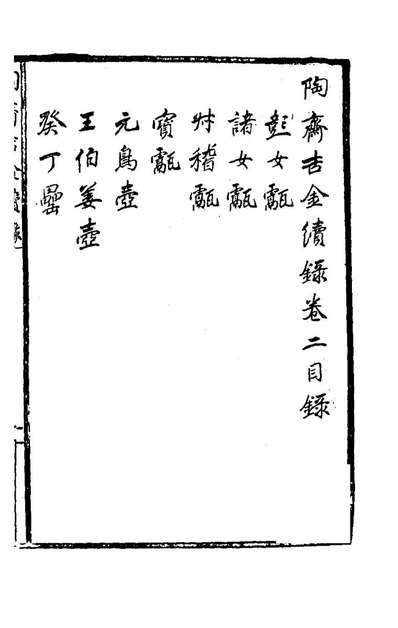 陶齋吉金續錄卷二目錄
彭女甗
諸女甗
甗
寶甗
元鳥壺
王伯姜壺
癸丁罍